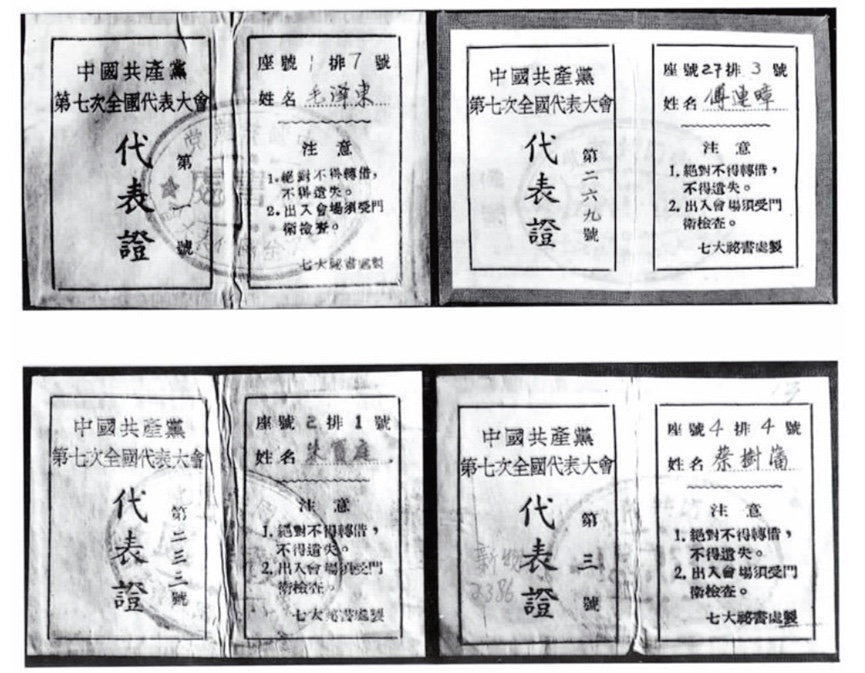 中國共產黨
第七次全國代表大會
代表證
第一號
座號1排7號
姓名 毛澤東
注意
1.絕對不得轉借，
不得遺失。
2.出入會場須受門
衛檢查。
七大祕書處製
中國共產黨
第七次全國代表大會
代表證
第二六九號
座號27排3號
姓名 傅連暲
注意
1.絕對不得轉借，
不得遺失。
2.出入會場須受門
衛檢查。
七大祕書處製
中國共產黨
第七次全國代表大會
代表證
第二三三號
座號2排1號
姓名 朱寶庭
注意
1.絕對不得轉借，
不得遺失。
2.出入會場須受門
衛檢查。
七大祕書處製
中國共產黨
第七次全國代表大會
代表證
第三號
2386
座號4排4號
姓名 蔡樹藩
注意
1.絕對不得轉借，
不得遺失。
2.出入會場須受門
衛檢查。
七大祕書處製
13